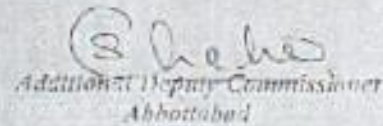 Additional Deputy Commissioner
Abbottabad